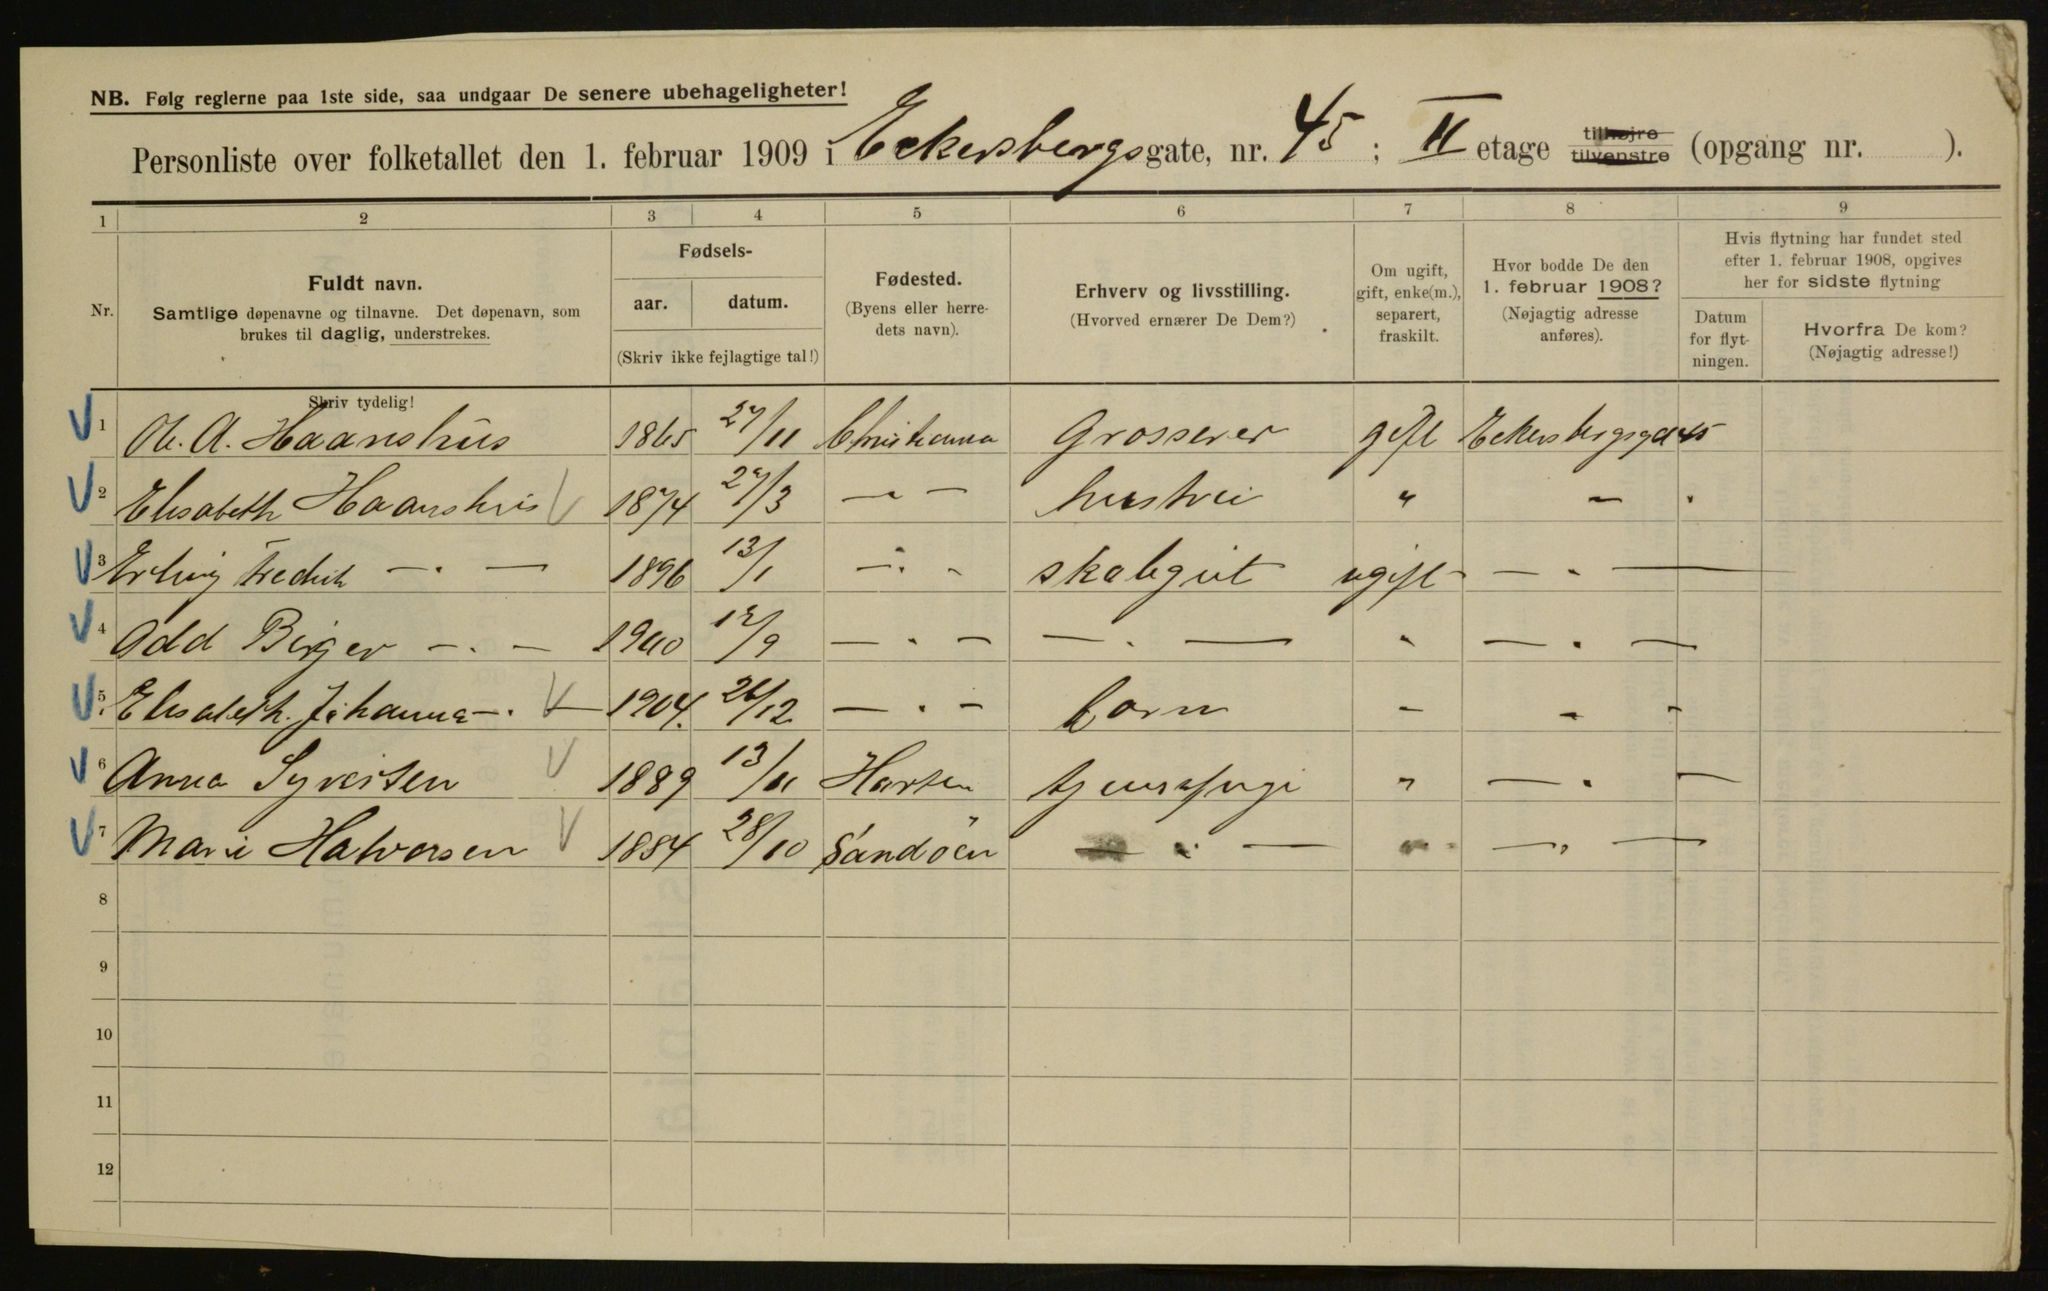 NB. Følg reglerne paa 1ste side, saa undgaar De senere ubehageligheter!
Personliste over folketallet den 1. februar 1909 i Eckersbergsgate, nr. 45; II etage tilhøjre tilvenstre (opgang nr. ).
1 2 3 4 5 6 7 8 9
Nr. Fuldt navn. Samtlige døpenavne og tilnavne. Det døpenavn, som brukes til daglig, understrekes.
Fødsels- aar. datum. (Skriv ikke fejlagtige tal!)
Fødested. (Byens eller herredets navn).
Erhverv og livsstilling. (Hvorved ernærer De Dem?)
Om ugift, gift, enke(m.), separert, fraskilt.
Hvor bodde De den 1. februar 1908? (Nøjagtig adresse anføres).
Hvis flytning har fundet sted efter 1. februar 1908, opgives her for sidste flytning
Datum for flytningen. Hvorfra De kom? (Nøjagtig adresse!)
Skriv tydelig!
1 A. Haanshus 1865 27/11 Christiania Grosserer gift Eckersbergsgd 45
2 Elisabeth Haanshus 1874 27/3 — " — hustru " — "
3 Erling Fredrik — " — 1896 13/1 — " — skolegut ugift — " —
4 Odd Birger — " — 1900 12/9 — " — — " — " — " —
5 Elisabeth Johanna — " — 1904 26/12 — " — barn " — "
6 Anna Syvertsen 1889 13/11 Horten " — " —
7 Marie Halvorsen 1884 28/10 Sandøen — " — " — " —
8
9
10
11
12